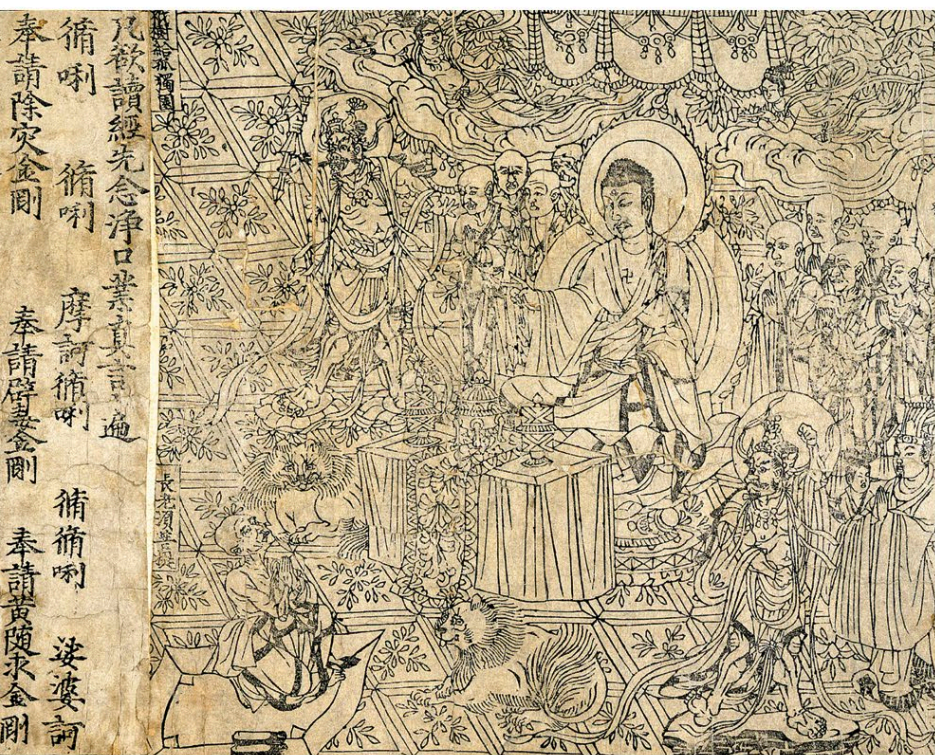 祇樹給孤獨園
長老須菩提
凡欲讀經先念淨口業真言遍
脩唎 脩唎 摩訶脩唎 脩脩唎 娑婆訶
奉請除灾金剛 奉請辟毒金剛 奉請黃隨求金剛